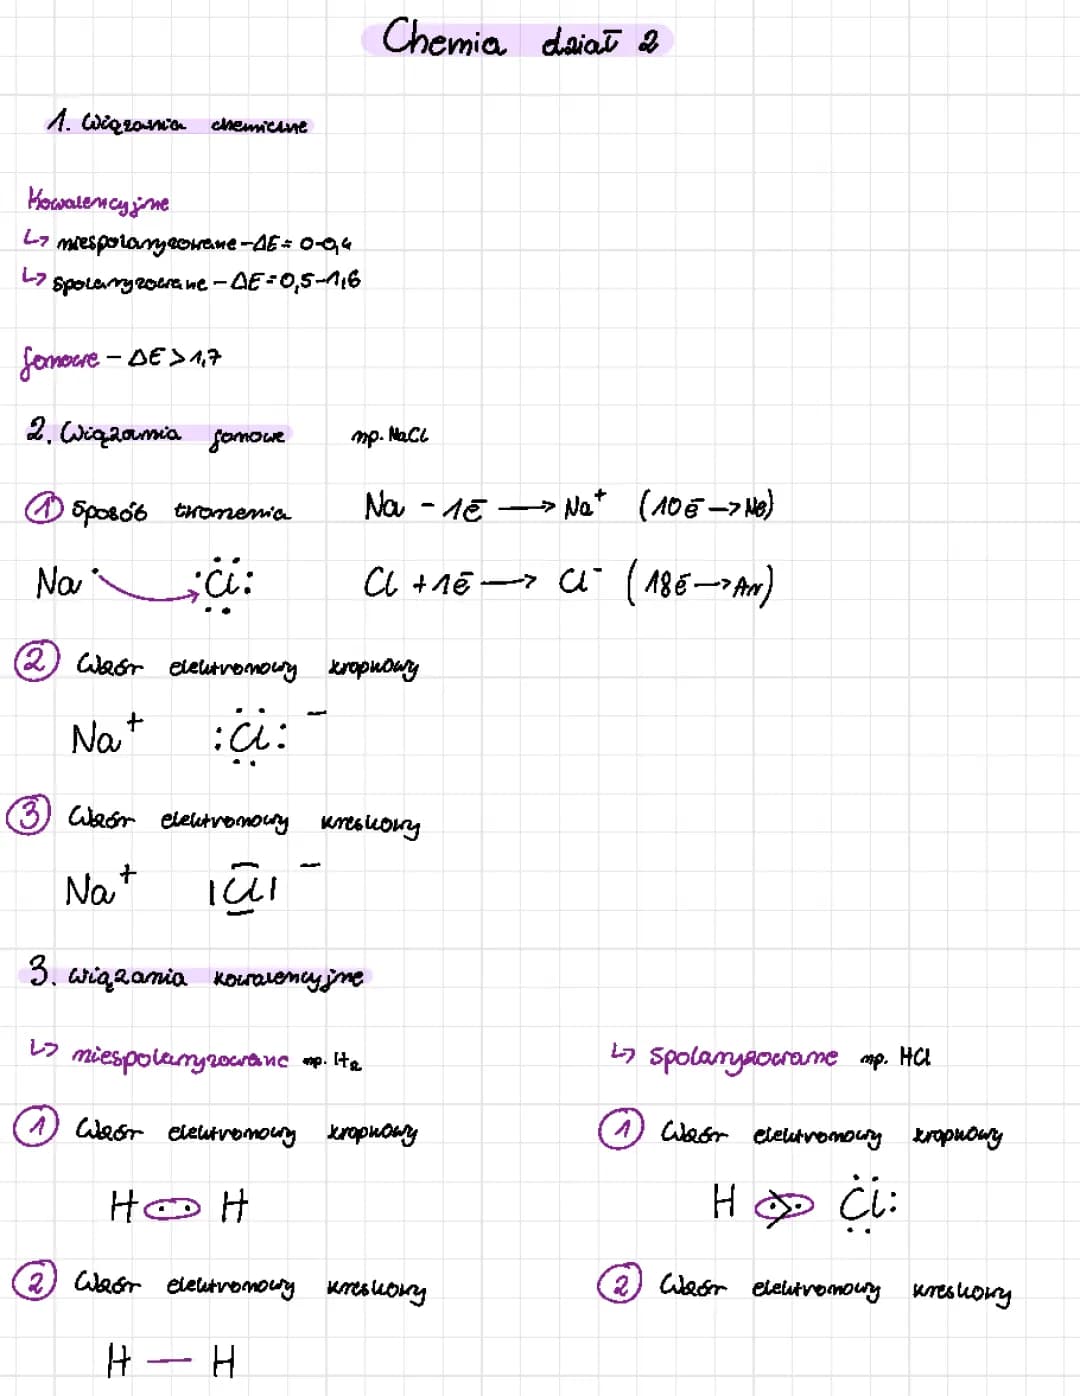 Chemia dział 2
1. Wiązania chemiczne
Kowalencyjne
↳ niespolaryzowane - ΔE = 0-0,4
↳ spolaryzowane - ΔE = 0,5-1,6
jonowe - ΔE > 1,7
2. Wiązania jonowe np. NaCl
① Sposób tworzenia Na - 1ē → Na⁺ (10ē → Ne)
Na· :C̈l: Cl + 1ē → Cl⁻ (18ē → Ar)
② Wzór elektronowy kropkowy
Na⁺ :C̈l:⁻
③ Wzór elektronowy kreskowy
Na⁺ |C̅l̲|⁻
3. Wiązania kowalencyjne
↳ niespolaryzowane np. H₂ ↳ spolaryzowane np. HCl
① Wzór elektronowy kropkowy ① Wzór elektronowy kropkowy
H ·· H H ·>· C̈l:
② Wzór elektronowy kreskowy ② Wzór elektronowy kreskowy
H — H